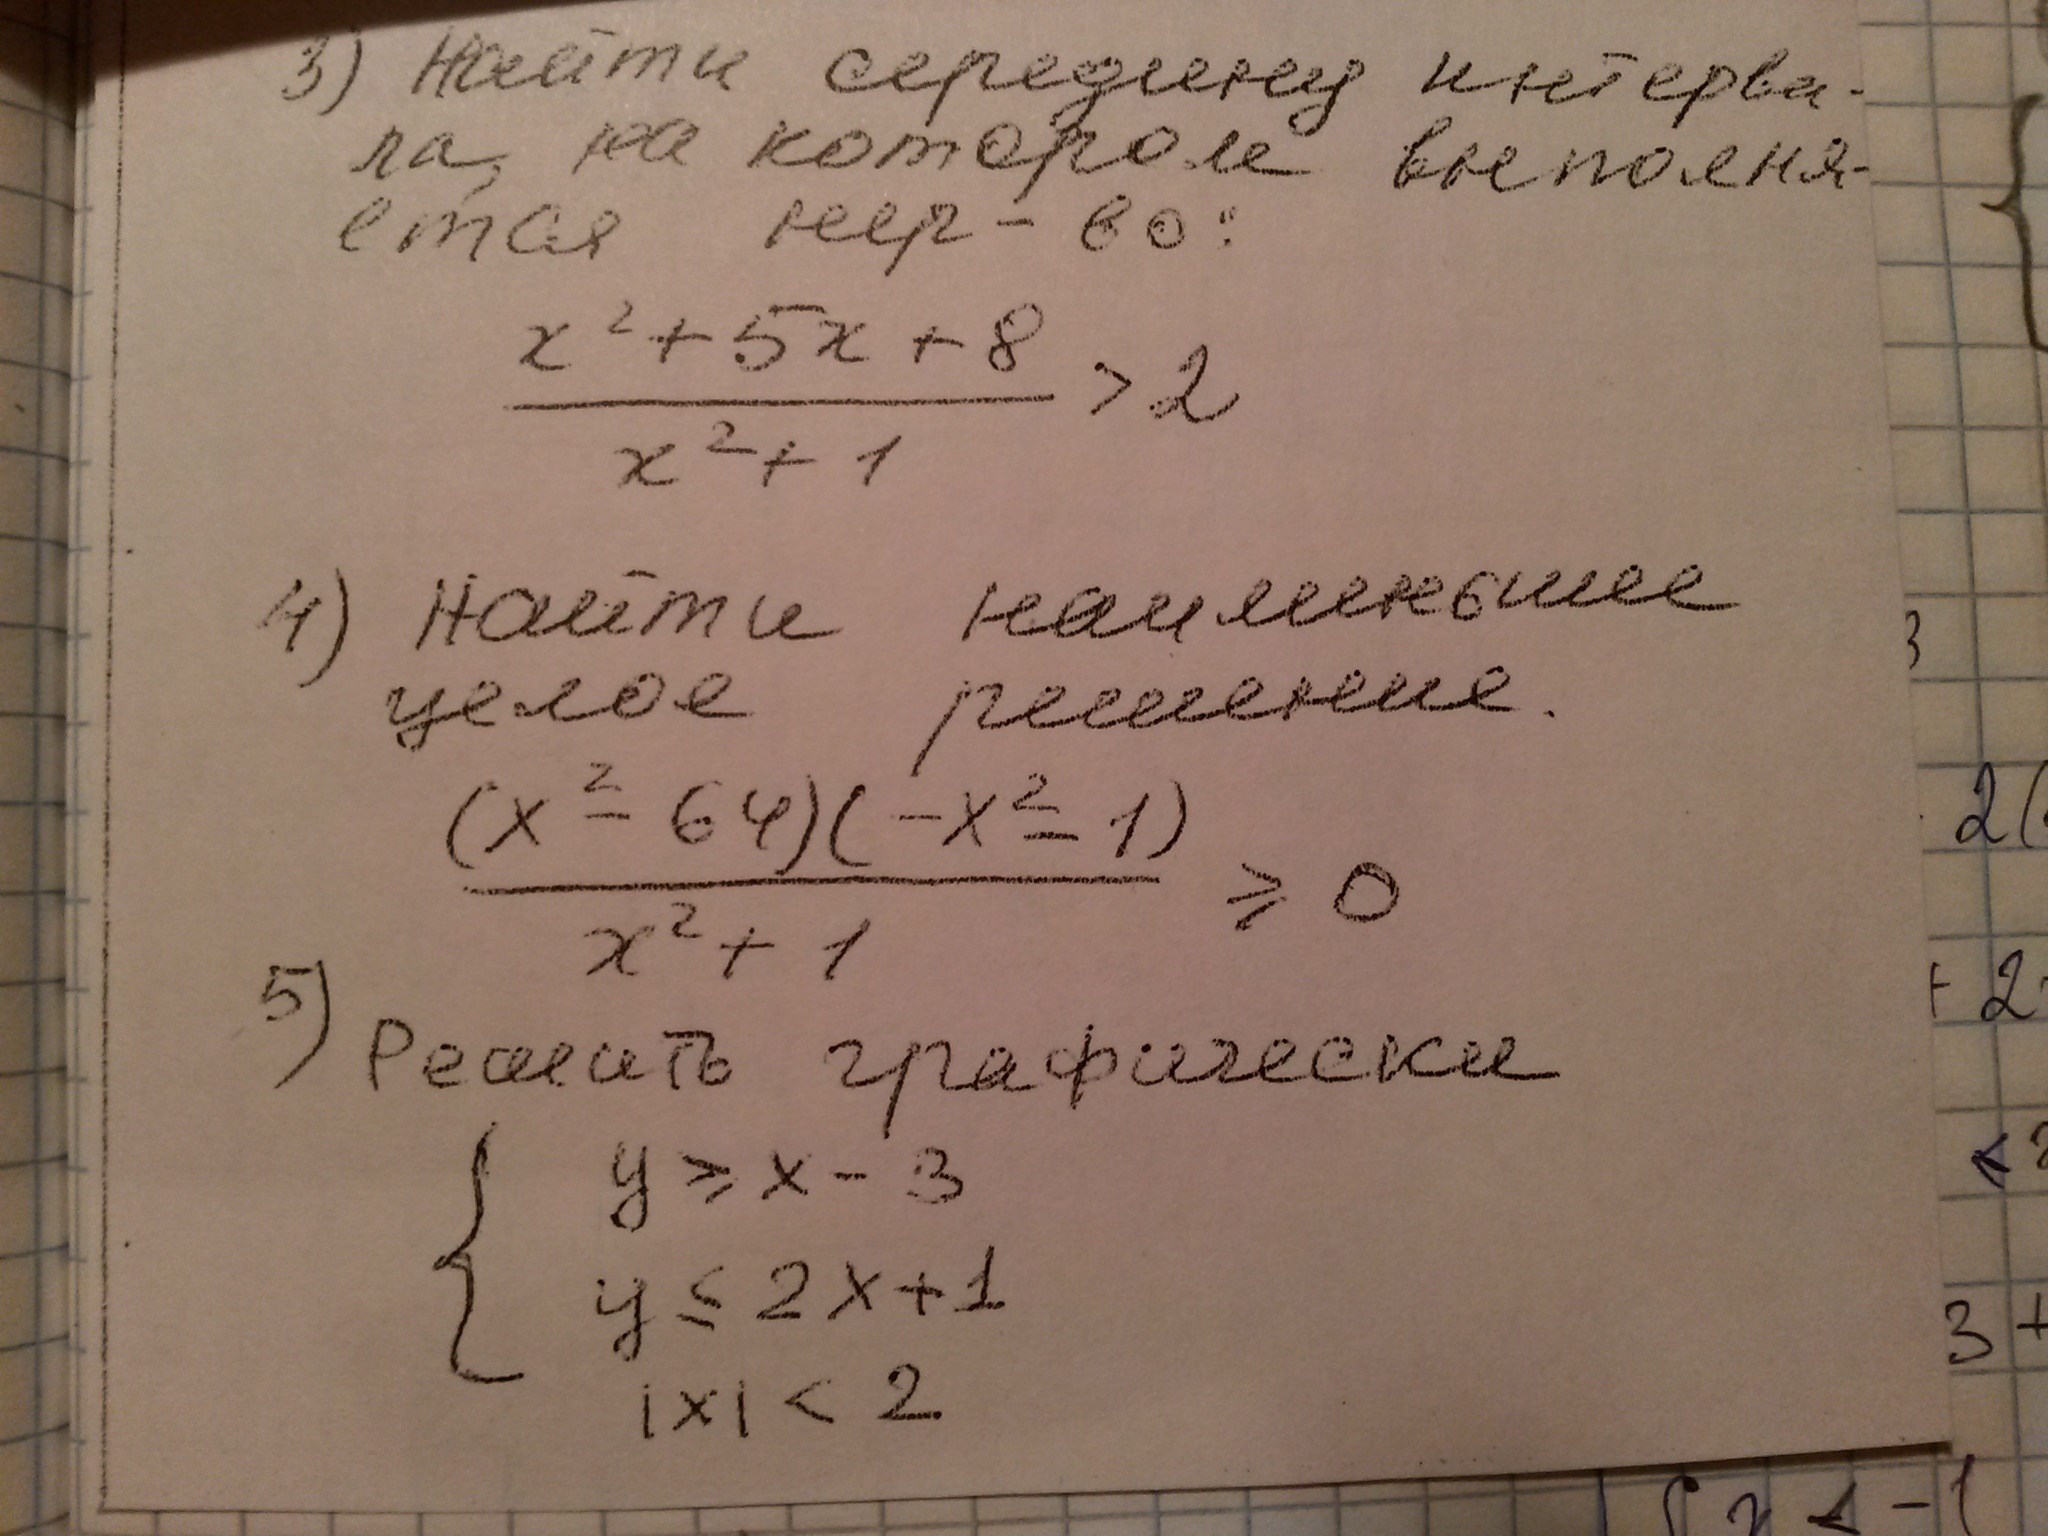 3) Найти середину интерва-
ла, на котором выполня-
ется нер-во:
x² + 5x + 8
> 2
x² + 1
4) Найти наименьшее
целое решение.
(x² - 64)(-x² - 1)
≥ 0
x² + 1
5)
Решить графически
{ y ≥ x - 3
y ≤ 2x + 1
|x| < 2
3
2(
+ 2
< 2
3 +
{ x < -1